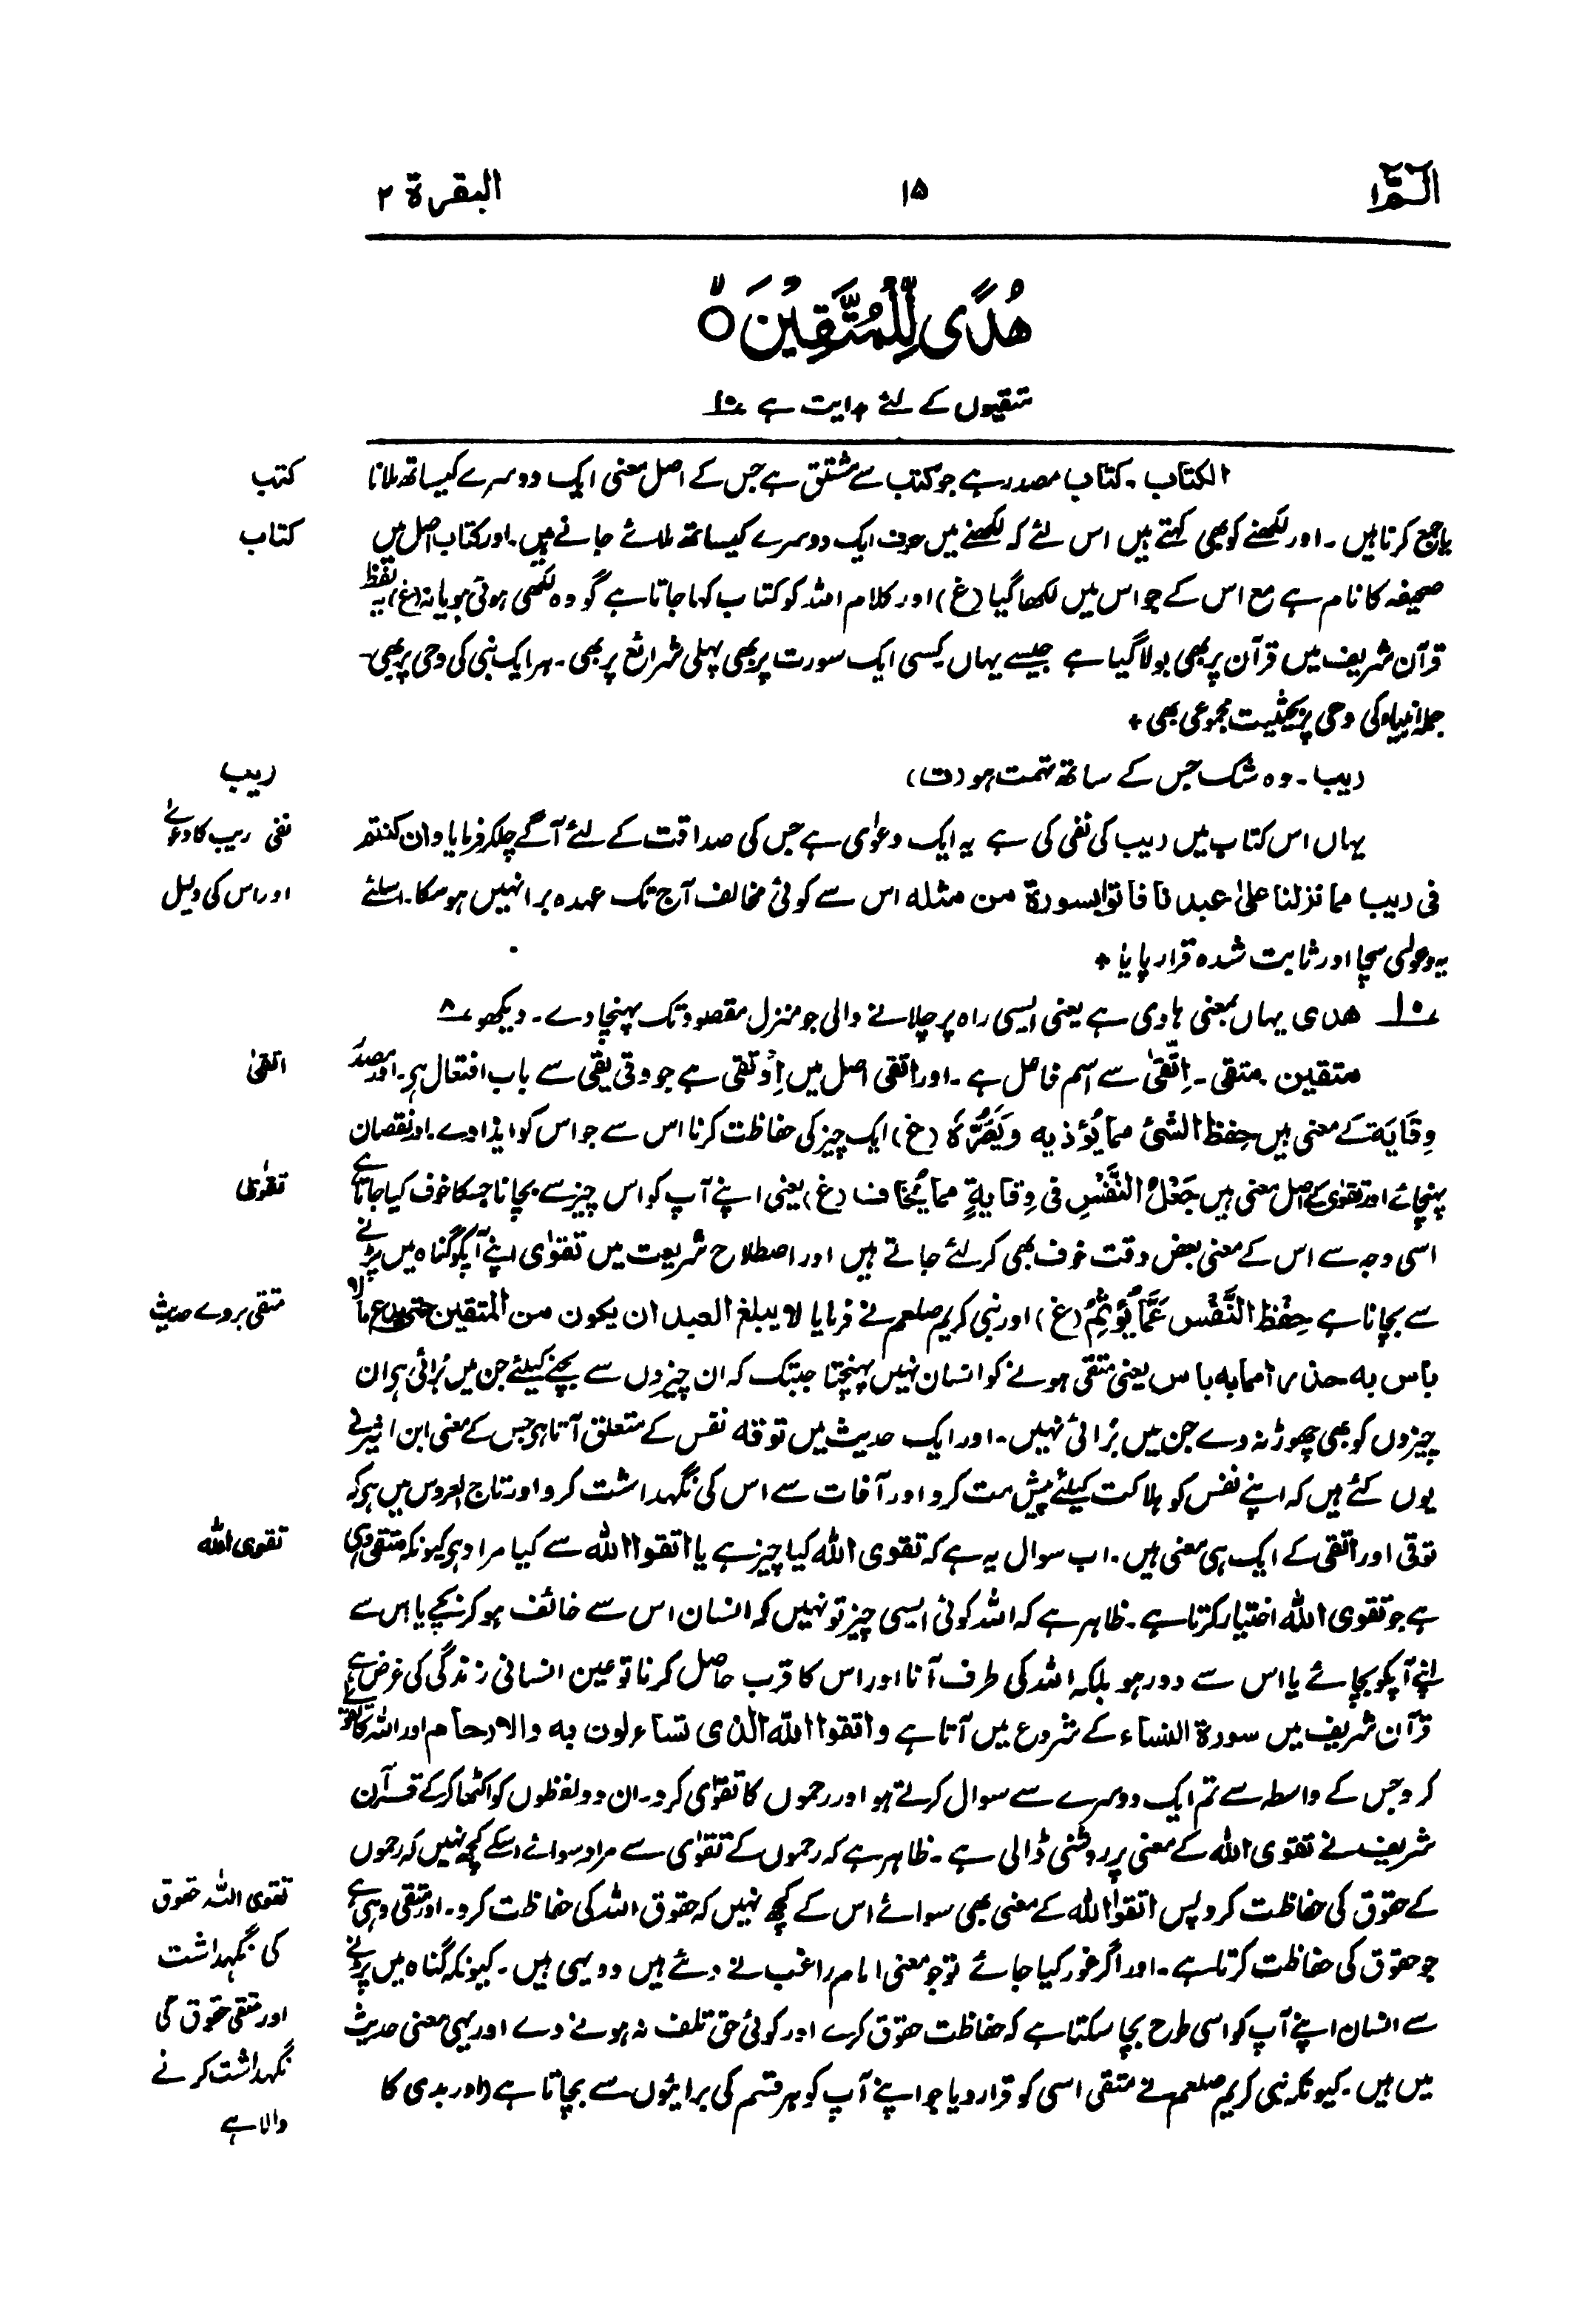 الٓمّٓ ۱
۱۵
البقرة ۲
هُدًى لِّلْمُتَّقِيْنَ ۙ○
متقیوں کے لئے ہدایت ہے ۱۰
الکتاب ۔ کتاب مصدر ہے جو کتب سے مشتق ہے جس کے اصل معنی ایک دوسرے کیساتھ ملانا
کتب
یا جمع کرنا ہیں ۔ اور لکھنے کو بھی کہتے ہیں اس لئے کہ لکھنے میں حروف ایک دوسرے کیساتھ ملائے جاتے ہیں ۔ اور کتاب اصل میں
کتاب
صحیفہ کا نام ہے مع اس کے جو اس میں لکھا گیا (غ) اور کلام اللہ کو کتاب کہا جاتا ہے گو وہ لکھی ہوئی ہو یا نہ (غ) یہ لفظ
قرآن شریف میں قرآن پر بھی بولا گیا ہے جیسے یہاں کسی ایک سورت پر بھی پہلی شرائع پر بھی ۔ ہر ایک نبی کی وحی پر بھی ۔
جملہ انبیاء کی وحی پر بحیثیت مجموعی بھی +
ریب ۔ وہ شک جس کے ساتھ تہمت ہو (ت)
ریب
یہاں اس کتاب میں ریب کی نفی کی ہے یہ ایک دعوٰی ہے جس کی صداقت کے لئے آگے چلکر فرمایا وان کنتم
نفی ریب کا دعوٰے
فی ریب مما نزلنا علیٰ عبدنا فاتوا بسورة من مثله اس سے کوئی مخالف آج تک عہدہ برا نہیں ہو سکا ۔ اسلئے
اور اس کی دلیل
یہ دعوٰی سچا اور ثابت شدہ قرار پایا +
۱۰ ھدی یہاں بمعنی ہادی ہے یعنی ایسی راہ پر چلانے والی جو منزل مقصود تک پہنچا دے ۔ دیکھو ۸
متقین ۔ متقی ۔ اِتّقیٰ سے اسم فاعل ہے ۔ اور اتقی اصل میں اِوْتقی ہے جو وقی یقی سے باب افتعال ہی ۔ اور مصدر
اتقیٰ
وِقَایَة کے معنی ہیں حِفظ الشئ مما یُؤذیه ویَضُرُّهٗ (غ) ایک چیز کی حفاظت کرنا اس سے جو اس کو ایذا دے ۔ اور نقصان
پہنچائے اور تقویٰ کے اصل معنی ہیں جَعْلُ النَّفْسِ فی وِقایةٍ مما یُخاف (غ) یعنی اپنے آپ کو اس چیز سے بچانا جسکا خوف کیا جاتا ہے
تقویٰ
اسی وجہ سے اس کے معنی بعض وقت خوف بھی کر لئے جاتے ہیں اور اصطلاح شریعت میں تقوٰی اپنے آپکو گناہ میں پڑنے
سے بچانا ہے حِفْظ النَّفْس عَمَّا یُؤْثِمُ (غ) اور نبی کریم صلعم نے فرمایا لا یبلغ العبد ان یکون من المتقین حتی یدع ما لا
متقی بروے حدیث
باس به حذرا مما به باس یعنی متقی ہونے کو انسان نہیں پہنچتا جبتک کہ ان چیزوں سے بچنے کیلئے جن میں بُرائی ہی ان
چیزوں کو بھی چھوڑ نہ دے جن میں بُرائی نہیں ۔ اور ایک حدیث میں توقه نفس کے متعلق آتا ہی جس کے معنی ابن اثیر نے
یوں کئے ہیں کہ اپنے نفس کو ہلاکت کیلئے پیش مت کرو اور آفات سے اس کی نگہداشت کرو اور تاج العروس میں ہی کہ
توقی اور اتقی کے ایک ہی معنی ہیں ۔ اب سوال یہ ہے کہ تقوی اللہ کیا چیز ہے یا اتقوا اللہ سے کیا مراد ہی کیونکہ متقی وہی
تقوی اللہ
ہے جو تقوی اللہ اختیار کرتا ہے ۔ ظاہر ہے کہ اللہ کوئی ایسی چیز تو نہیں کہ انسان اس سے خائف ہو کر بچے یا اس سے
اپنے آپکو بچائے یا اس سے دور ہو بلکہ اللہ کی طرف آنا اور اس کا قرب حاصل کرنا تو عین انسانی زندگی کی غرض ہے
قرآن شریف میں سورة النساء کے شروع میں آتا ہے واتقوا اللہ الذی تساءلون به والارحام اور اللہ کا تقویٰ
کرو جس کے واسطہ سے تم ایک دوسرے سے سوال کرتے ہو اور رحموں کا تقوٰی کرو ۔ ان دو لفظوں کو اکٹھا کرکے قرآن
شریف نے تقوی اللہ کے معنی پر روشنی ڈالی ہے ۔ ظاہر ہے کہ رحموں کے تقوٰی سے مراد سوائے اسکے کچھ نہیں کہ رحموں
کے حقوق کی حفاظت کرو پس اتقوا اللہ کے معنی بھی سوائے اس کے کچھ نہیں کہ حقوق اللہ کی حفاظت کرو ۔ اور متقی وہی ہے
تقوی اللہ حقوق
جو حقوق کی حفاظت کرتا ہے ۔ اور اگر غور کیا جائے تو جو معنی امام راغب نے دئے ہیں وہ یہی ہیں ۔ کیونکہ گناہ میں پڑنے
کی نگہداشت
سے انسان اپنے آپ کو اسی طرح بچا سکتا ہے کہ حفاظت حقوق کرے اور کوئی حق تلف نہ ہونے دے اور یہی معنی حدیث
اور متقی حقوق کی
میں ہیں ۔ کیونکہ نبی کریم صلعم نے متقی اسی کو قرار دیا جو اپنے آپ کو ہر قسم کی برائیوں سے بچاتا ہے (اور بدی کا
نگہداشت کرنے
والا ہے